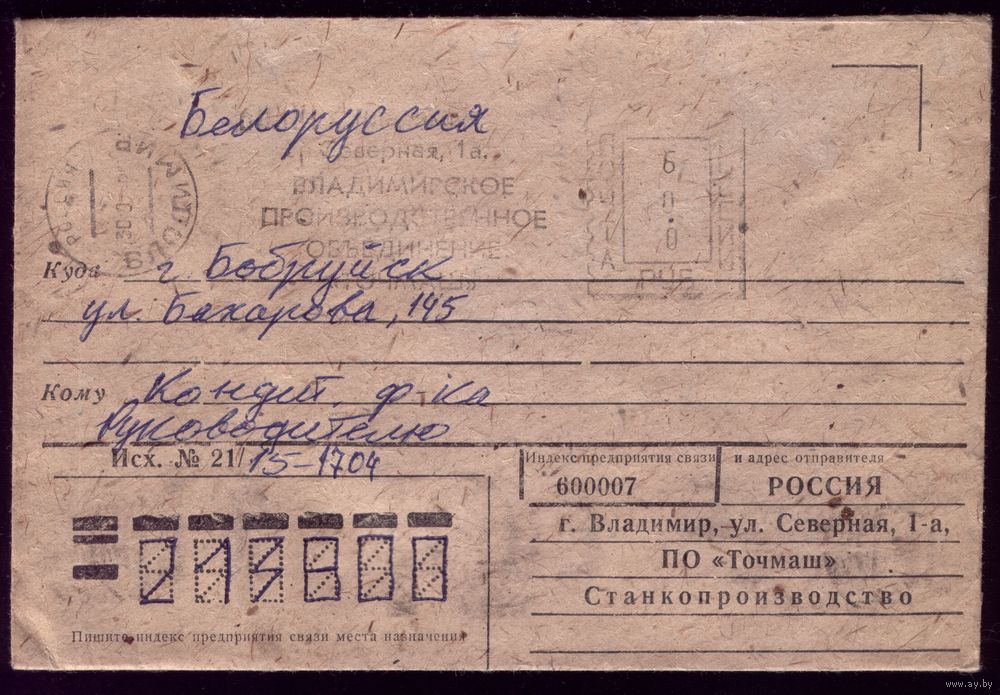 Белоруссия
Северная, 1а.
ВЛАДИМИРСКОЕ
ПРОИЗВОДСТВЕННОЕ
ОБЪЕДИНЕНИЕ
«ТОЧМАШ»
ПОЧТА
Б
П
0
RUS
Куда г. Бобруйск
ул. Бахарова, 145
Кому Кондит. ф-ка
Руководителю
Исх. № 21/ 15-1704
Индекс предприятия связи и адрес отправителя
600007 РОССИЯ
г. Владимир, ул. Северная, 1-а,
ПО «Точмаш»
Станкопроизводство
213800
Пишите индекс предприятия связи места назначения
www.ay.by